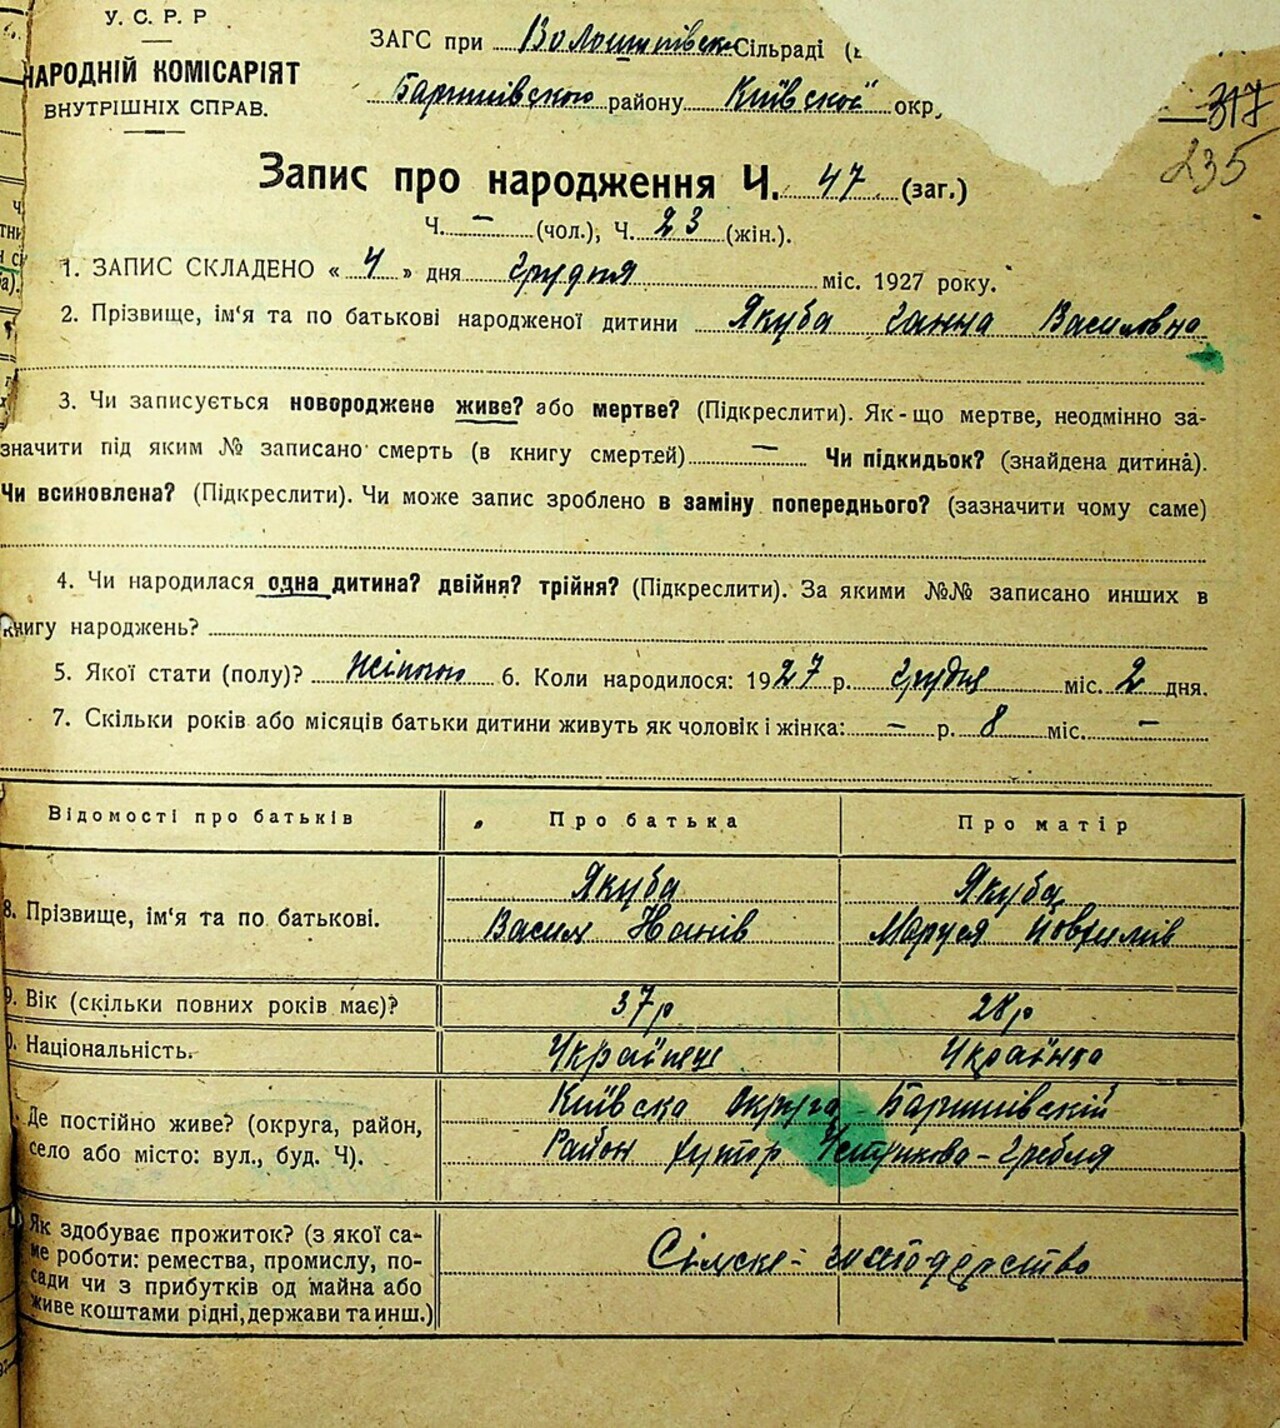 У. С. Р. Р
НАРОДНІЙ КОМІСАРІЯТ
ВНУТРІШНІХ СПРАВ.
ЗАГС при Волошинівск. Сільраді
Баришівского району Київскої окр
317
235
Запис про народження Ч. 47 (заг.)
Ч. — (чол.), Ч. 23 (жін.).
1. ЗАПИС СКЛАДЕНО « 4 » дня грудня міс. 1927 року.
2. Прізвище, ім'я та по батькові народженої дитини Якуба Ганна Василовна
3. Чи записується новороджене живе? або мертве? (Підкреслити). Як-що мертве, неодмінно за-
значити під яким № записано смерть (в книгу смертей) — Чи підкидьок? (знайдена дитина).
Чи всиновлена? (Підкреслити). Чи може запис зроблено в заміну попереднього? (зазначити чому саме)
4. Чи народилася одна дитина? двійня? трійня? (Підкреслити). За якими №№ записано инших в
книгу народжень?
5. Якої стати (полу)? Жіночою 6. Коли народилося: 1927 р. грудня міс. 2 дня.
7. Скільки років або місяців батьки дитини живуть як чоловік і жінка: — р. 8 міс. —
Відомості про батьків Про батька Про матір
8. Прізвище, ім'я та по батькові. Якуба Якуба
Васил Маруся
9. Вік (скільки повних років має)? 37р 28р
Національність. Українець Українка
Де постійно живе? (округа, район, Київска Округа Баришівскій
село або місто: вул., буд. Ч). Район хутор Гребля
Як здобуває прожиток? (з якої са-
ме роботи: ремества, промислу, по- Сілске-господарство
сади чи з прибутків од майна або
живе коштами рідні, держави та инш.)